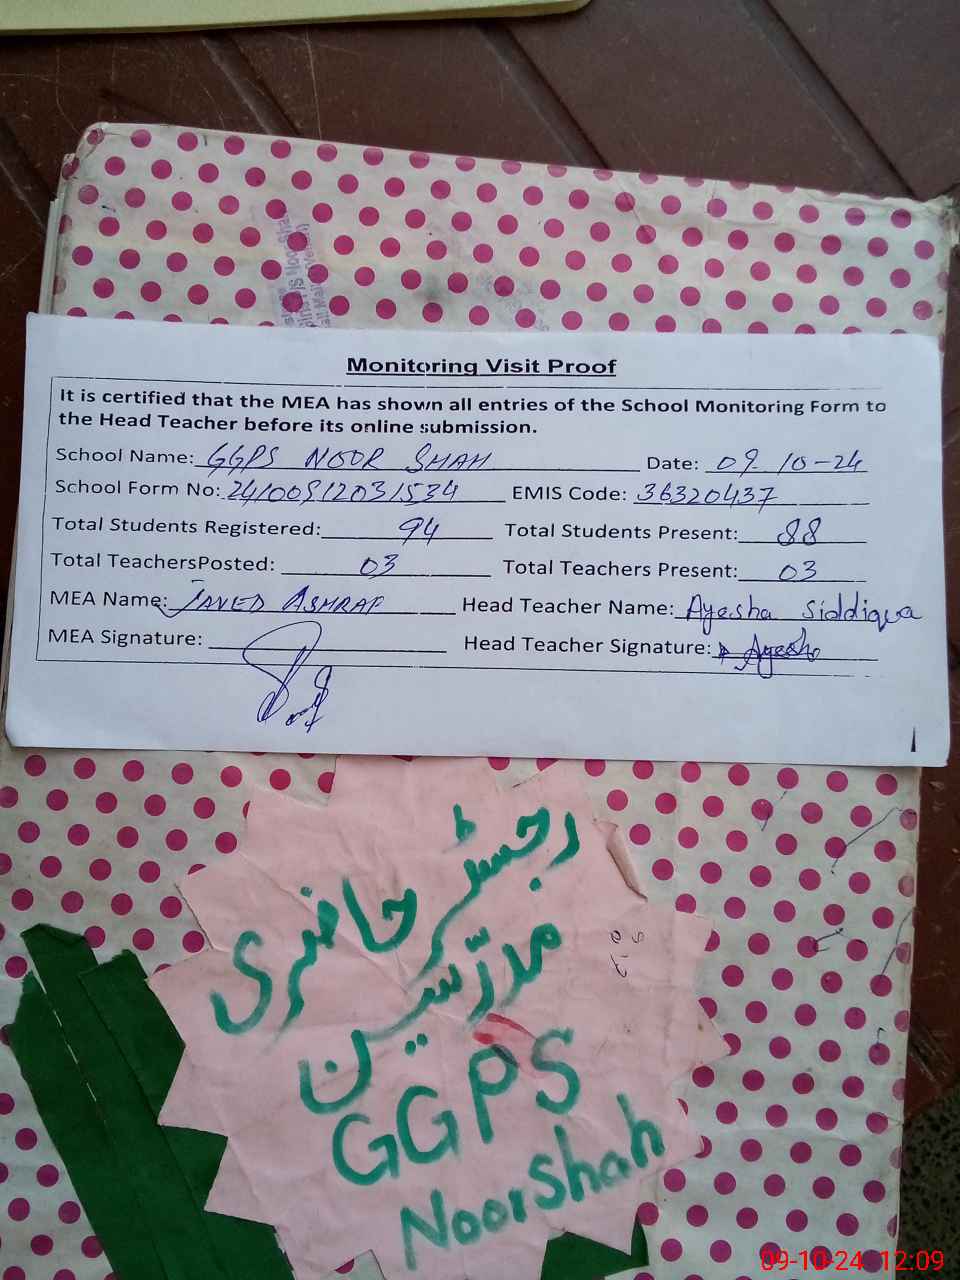 Monitoring Visit Proof
It is certified that the MEA has shown all entries of the School Monitoring Form to
the Head Teacher before its online submission.
School Name: GGPS NOOR SHAH Date: 09-10-24
School Form No: EMIS Code: 36320437
Total Students Registered: 94 Total Students Present: 88
Total TeachersPosted: 03 Total Teachers Present: 03
MEA Name: JAVED ASHRAF Head Teacher Name: Ayesha Siddiqua
MEA Signature: Head Teacher Signature: Ayesha
رجسٹر حاضری
مدرّسین
GGPS
Noor Shah
09-10-24 12:09